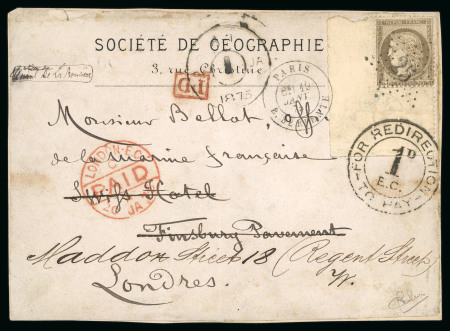 SOCIÉTÉ DE GÉOGRAPHIE
3, rue Christine
JA
1875
PD
PARIS
Monsieur Bellot,
de la marine Française
LONDON-E.C
PAID
20 JA
Swifs Hotel
Finsbury Pavement
Maddox Street 18 (Regent Street)
W.
Londres.
FOR REDIRECTION
1D
E.C.
TO PAY